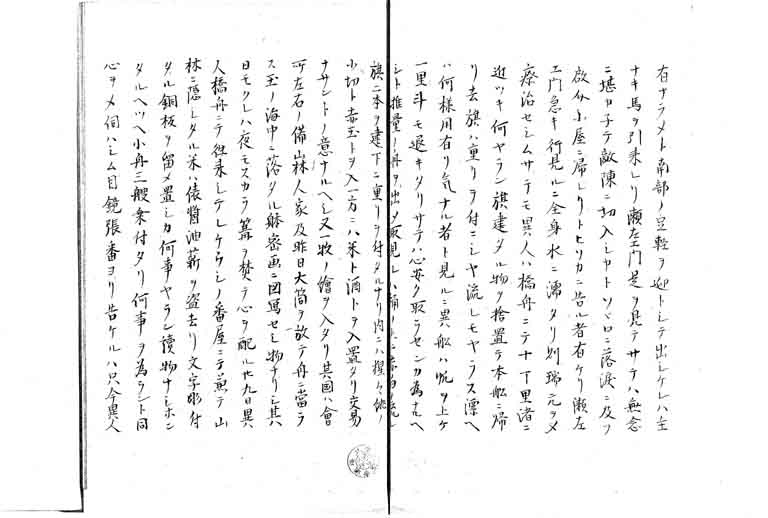 有ナラメト南部ノ足軽ヲ迎トシテ出シケレハ主
ナキ馬ヲ引来レリ瀬左エ門是ヲ見テサテハ無念
ニ堪カ子テ敵陳ニ切入シカトソヾロニ落涙ニ及ヲ
小屋ニ帰レリトヒソカニ告ル者有ケリ瀬左
エ門急キ行見ルニ全身水ニ濡タリ瑞元ヲメ
療治セシムサテモ異人ハ橋舟ニテ十丁里渚ニ
近ツキ何ヤラン旗建タル物ヲ捨置テ本船ニ帰
リ去旗ハ重リヲ付ニシヤ流レモヤラス漂ヘ
ハ何様用有リ気ナル者ト見ルニ異船ハ帆ヲ上ケ
一里斗モ退キタリサテハ心安ク取ラセンカ為ナルヘ
シト推量シ舟ヲ出メ取見レハ
旗二本ヲ建下ニ重リヲ付タルナリ内ニハ
小切ト赤玉トヲ入一方ニハ米ト酒トヲ入置タリ交易
ナサントノ意ナルヘシ又一枚ノ繪ヲ入タリ其図ハ會
所左右ノ備山林人家及昨日大筒ヲ放テ舟ニ當ラ
ス玉ノ海中ニ落タル躰密画ニ図写セシ物ナリシ其ハ
日モクレハ夜モスカラ篝ヲ焚テ心ヲ配ル廿九日異
人橋舟ニテ徃来シテレケウシノ番屋ニテ煎テ山
林ニ隠シタル米八俵醬油薪ヲ盗去リ文字彫付
タル銅板ヲ留メ置シカ何事ヤラン讀物ナシホン
タルヘツヘ小舟三艘乗付タリ何事ヲ為ラント同
心ヲメ伺ハシム目鏡張番ヨリ告ケルハ只今異人